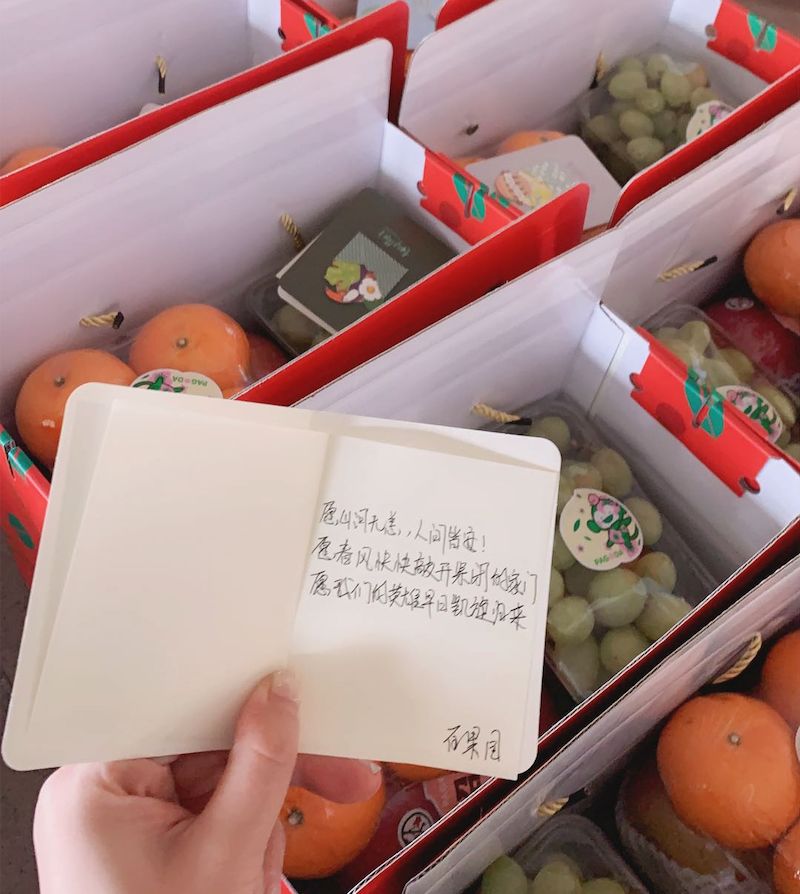 愿山河无恙,,人间皆安!
愿春风快快敲开禁闭的家门
愿我们的英雄早日凯旋归来
百果园
PAGODA
PAGODA